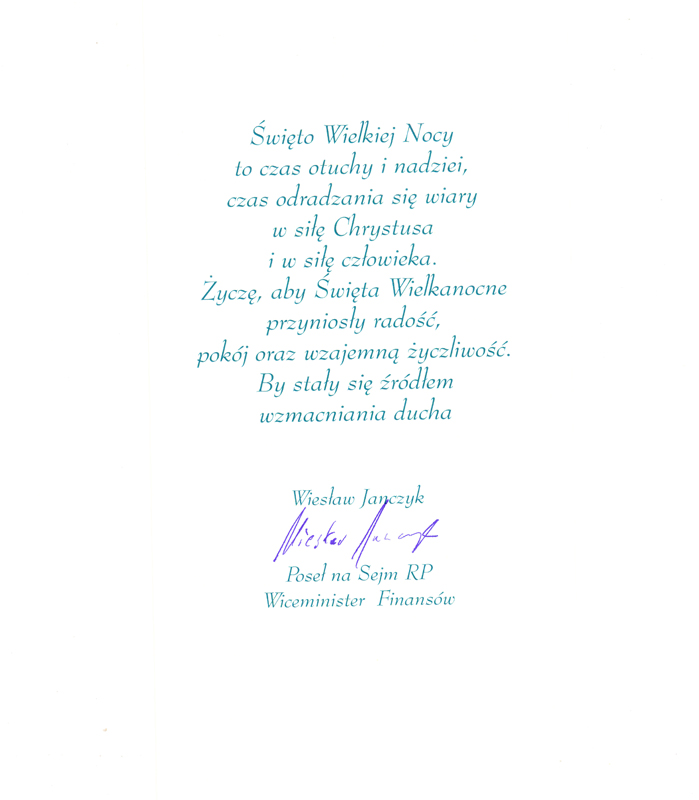 Święto Wielkiej Nocy
to czas otuchy i nadziei,
czas odradzania się wiary
w siłę Chrystusa
i w siłę człowieka.
Życzę, aby Święta Wielkanocne
przyniosły radość,
pokój oraz wzajemną życzliwość.
By stały się źródłem
wzmacniania ducha
Wiesław Janczyk
Wiesław Janczyk
Poseł na Sejm RP
Wiceminister Finansów